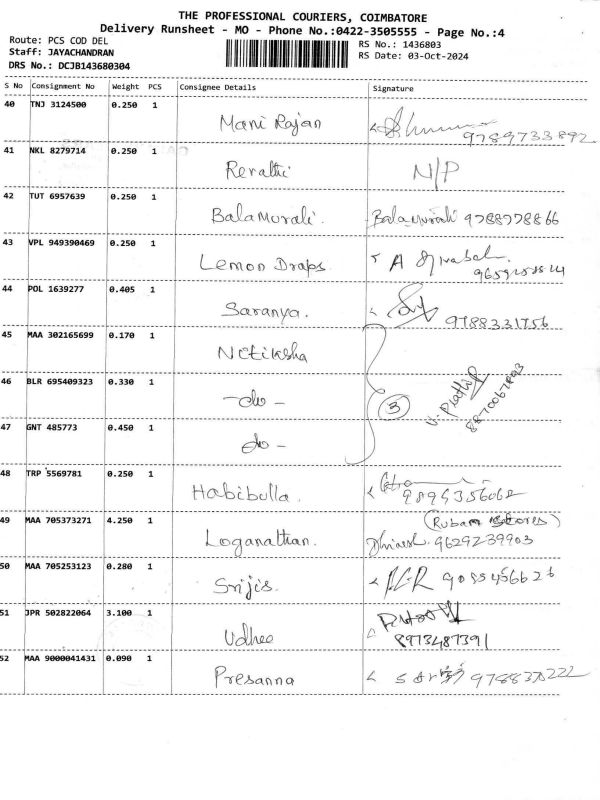 THE PROFESSIONAL COURIERS, COIMBATORE
Delivery Runsheet - MO - Phone No.:0422-3505555 - Page No.:4
Route: PCS COD DEL
Staff: JAYACHANDRAN
DRS No.: DCJB143680304
RS No.: 1436803
RS Date: 03-Oct-2024
S No Consignment No Weight PCS Consignee Details Signature
40 TNJ 3124500 0.250 1 Mani Rajan 9789733892
41 NKL 8279714 0.250 1 Revathi N/P
42 TUT 6957639 0.250 1 BalaMurali. Balamurali 9788778866
43 VPL 949390469 0.250 1 Lemon Drops A
44 POL 1639277 0.405 1 Saranya. 9788331756
45 MAA 302165699 0.170 1 Netiksha
46 BLR 695409323 0.330 1 -do- 3 V. Prathip
47 GNT 485773 0.450 1 do -
48 TRP 5569781 0.250 1 Habibulla. 9894356062
49 MAA 705373271 4.250 1 Loganathan. (Rubam Stores)
Dhinesh. 9629239903
50 MAA 705253123 0.280 1 Srijis.
51 JPR 502822064 3.100 1 Udhee 8973487391
52 MAA 9000041431 0.090 1 Presanna